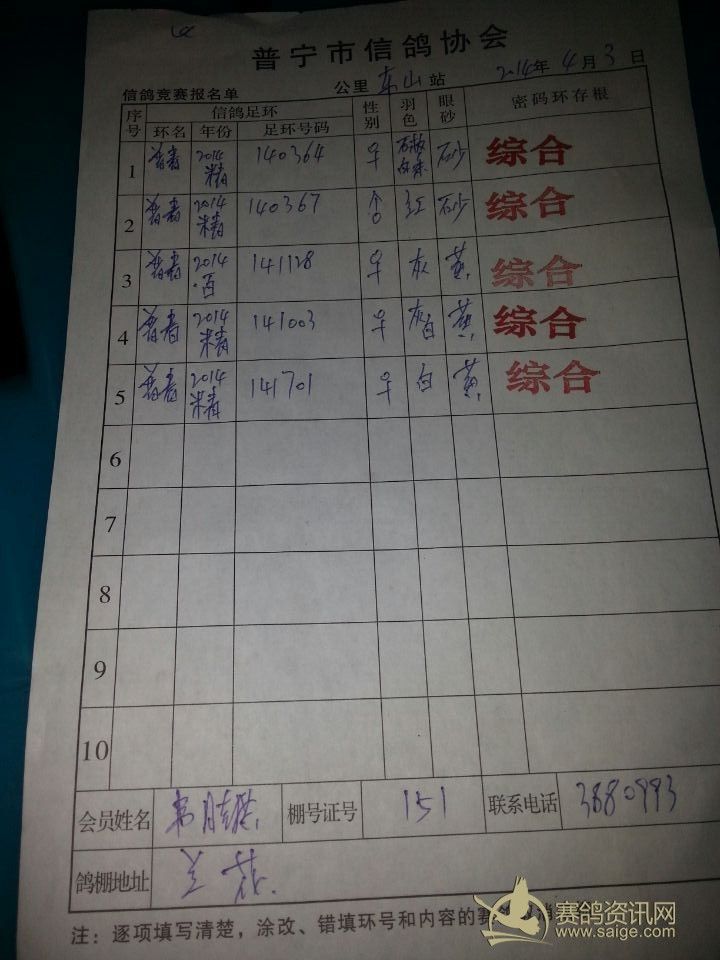 普宁市信鸽协会
信鸽竞赛报名单 公里 东山 站 2014年 4月 3日
序号 信鸽足环 性别 羽色 眼砂 密码环存根
环名 年份 足环号码
1 2014 140364 ♀ 石砂 综合
2 2014 140367 红 石砂 综合
3 2014 141128 ♀ 灰 黄 综合
4 2014 141003 ♀ 灰白 黄 综合
5 2014 141701 ♀ 白 黄 综合
6
7
8
9
10
会员姓名 棚号证号 151 联系电话 3880993
鸽棚地址
注：逐项填写清楚，涂改、错填环号和内容的赛
赛鸽资讯网
www.saige.com